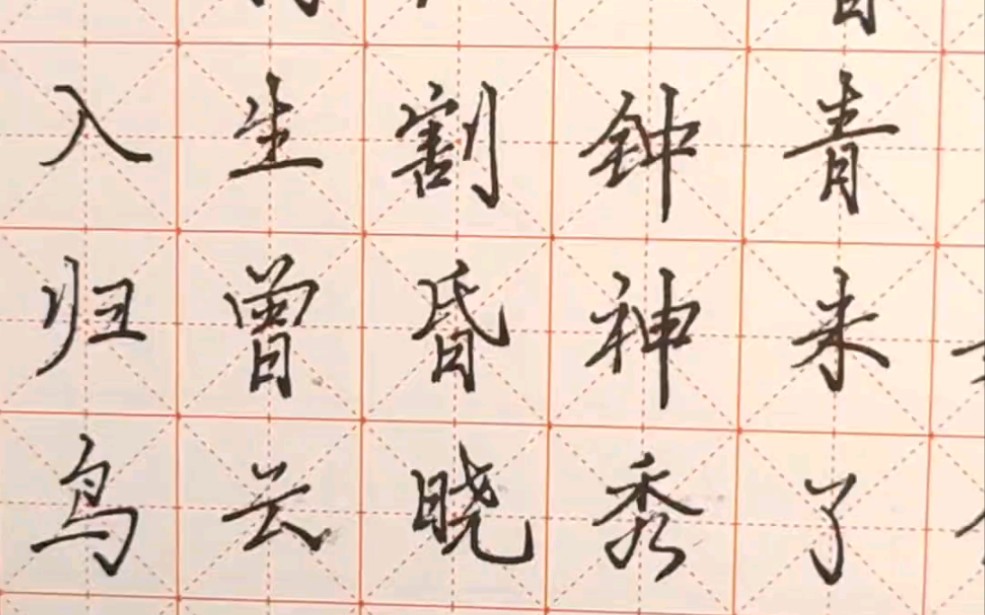 青未了
钟神秀
割昏晓
生曾云
入归鸟